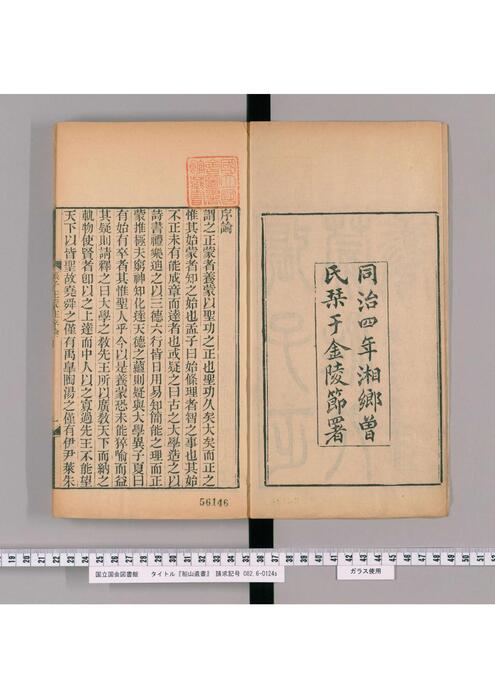 同治四年湘鄉曾
氏栞于金陵節署
序論
謂之正蒙者養蒙以聖功之正也聖功久矣大矣而正之
惟其始蒙者知之始也孟子曰始條理者智之事也其始
不正未有能成章而達者也或疑之曰古之大學造之以
詩書禮樂迪之以三德六行皆日用易知簡能之理而正
蒙推極夫窮神知化達天德之蘊則疑與大學異子夏曰
有始有卒者其惟聖人乎今以是養蒙恐未能猝喻而益
其疑則請釋之曰大學之敎先王所以廣敎天下而納之
軌物使賢者卽以之上達而中人以之寡過先王不能望
天下以皆聖故堯舜之僅有禹皋陶湯之僅有伊尹萊朱
56146
19 20 21 22 23 24 25 26 27 28 29 30 31 32 33 34 35 36 37 42 43 44 45 46 47 48 49 50 51 52 53 54
国立国会図書館 タイトル『船山遺書』 請求記号 082.6-O124s
ガラス使用